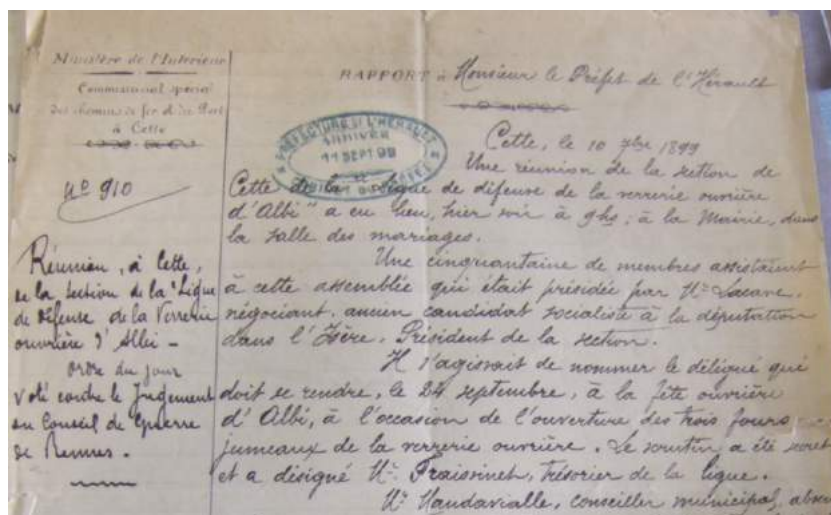 Ministère de l'Intérieur
Commissariat spécial
des chemins de fer et du Port
à Cette
N° 910
Réunion, à Cette,
de la section de la "Ligue
de défense de la Verrerie
ouvrière d'Albi –
ordre du jour
voté contre le Jugement
du Conseil de Guerre
de Rennes.
RAPPORT à Monsieur le Préfet de l'Hérault
PREFECTURE DE L'HERAULT
ARRIVEE
11 SEPT 99
Cette, le 10 7bre 1899
Une réunion de la section de
Cette de la "Ligue de défense de la verrerie ouvrière
d'Albi" a eu lieu, hier soir à 9hs, à la Mairie, dans
la salle des mariages.
Une cinquantaine de membres assistaient
à cette assemblée qui était présidée par Mr Lacave,
négociant, ancien candidat socialiste à la députation
dans l'Isère, Président de la section.
Il s'agissait de nommer le délégué qui
doit se rendre, le 24 septembre, à la fête ouvrière
d'Albi, à l'occasion de l'ouverture des trois fours
jumeaux de la verrerie ouvrière. Le scrutin a été secret
et a désigné Mr Fraissinet, trésorier de la ligue.
Mr Vaudavialle, conseiller municipal, absen